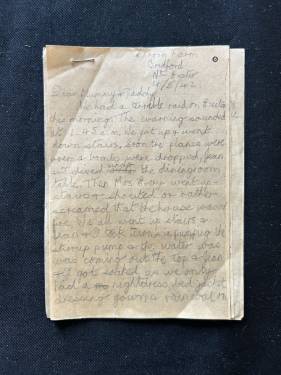 Farm
Nr Exeter
4/5/42
Dear Mummy & Daddy
We had a terrible raid on Exeter
this morning. The warning sounded
at 1.45 a.m. We got up & went
down stairs, soon the planes were
over & bombs were dropped, Jean
under the diningroom
table. Then Mrs went up
stairs & shouted or rather
screamed that the house was on
fire. We all went up stairs &
Jean & I took turns pumping the
stirrup pump & the water was
was coming out the top & Jean
& I got soaked as we only
had a nightdress, bed jacket
dressing gown & rainmac on